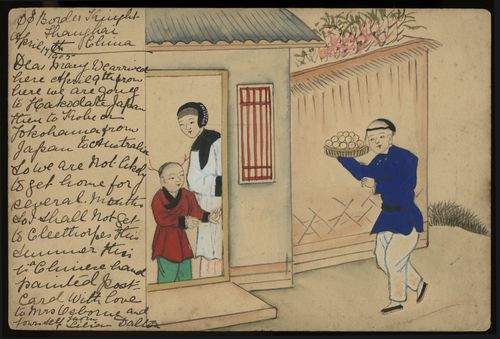 SS Border Knight
Shanghai
April 14th China
1905
Dear Mary We arrived
here April 9th from
here we are going
to Hakodate Japan
then to Kobe or
Yokohama from
Japan to Australia
So we are not likely
to get home for
several months
So I shall not get
to Cleethorpes this
Summer this
is a Chinese hand
painted Post-
Card With love
to Mrs Osborne and
yourself from
Lilian Dalton